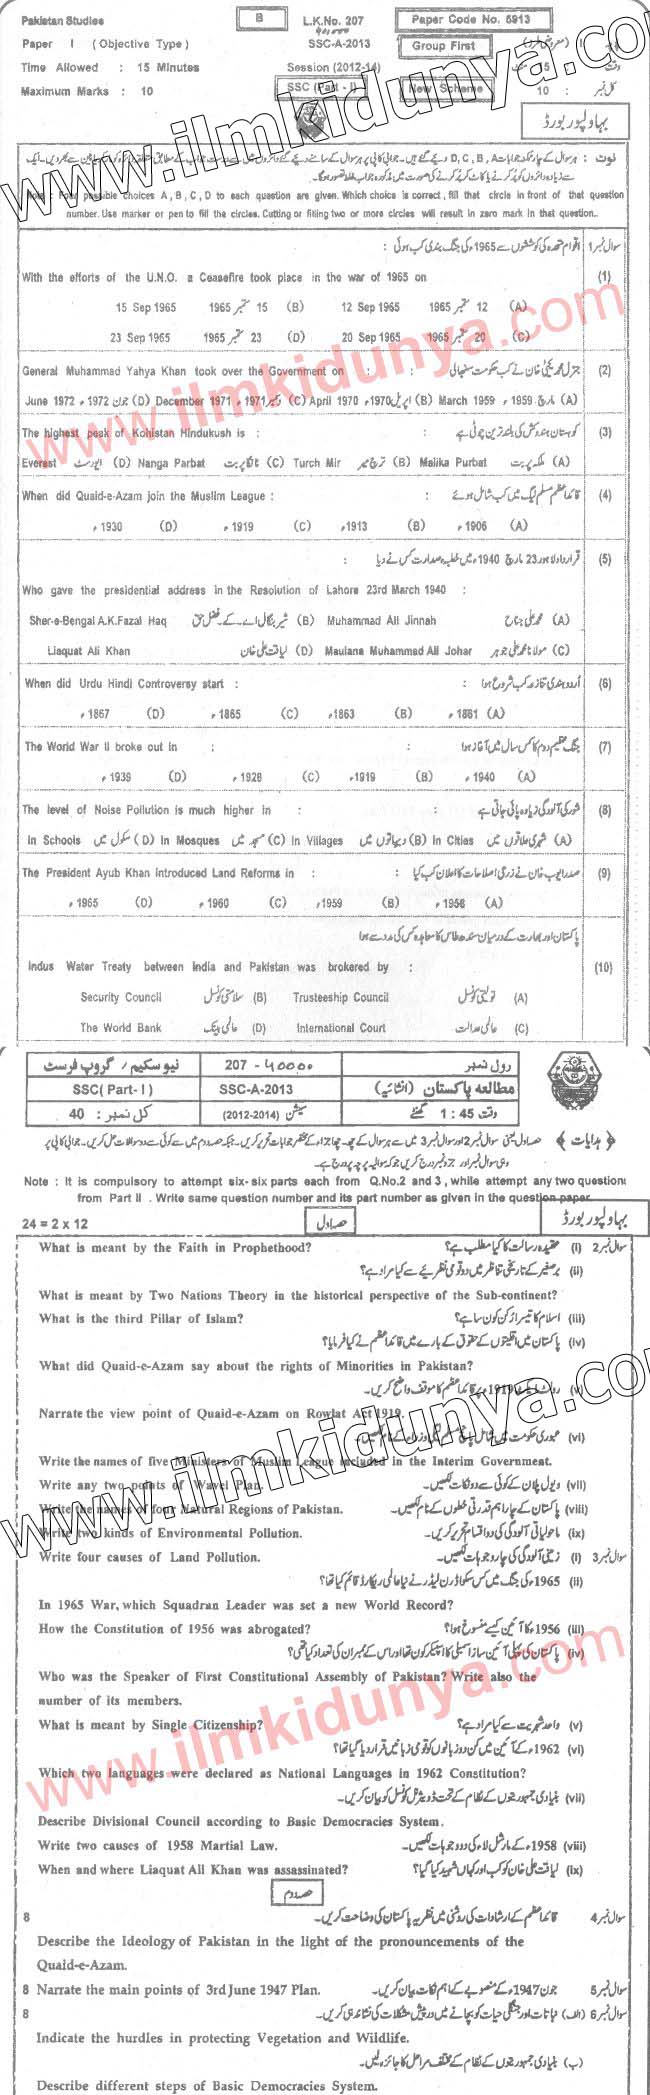 Pakistan Studies B L.K.No. 207 Paper Code No. 5913
Paper I (Objective Type) SSC-A-2013 Group First
Time Allowed : 15 Minutes Session (2012-14) وقت 15 منٹ
Maximum Marks : 10 SSC (Part - I) New Scheme کل نمبر : 10
بہاولپور بورڈ
www.ilmkidunya.com
Note : Four possible choices A, B, C, D to each question are given. Which choice is correct, fill that circle in front of that question
number. Use marker or pen to fill the circles. Cutting or filling two or more circles will result in zero mark in that question..
سوال نمبر 1 اقوام متحدہ کی کوششوں سے 1965ء کی جنگ بندی کب ہوئی :
With the efforts of the U.N.O. a Ceasefire took place in the war of 1965 on (1)
15 Sep 1965 15 ستمبر 1965 (B) 12 Sep 1965 12 ستمبر 1965 (A)
23 Sep 1965 23 ستمبر 1965 (D) 20 Sep 1965 20 ستمبر 1965 (C)
General Muhammad Yahya Khan took over the Government on : جنرل محمد یحییٰ خان نے کب حکومت سنبھالی : (2)
June 1972 جون 1972ء (D) December 1971 دسمبر 1971ء (C) April 1970 اپریل 1970ء (B) March 1959 مارچ 1959ء (A)
The highest peak of Kohistan Hindukush is : کوہستان ہندوکش کی بلند ترین چوٹی ہے : (3)
Everest ایورسٹ (D) Nanga Parbat نانگا پربت (C) Turch Mir ترچ میر (B) Malika Purbat ملکہ پربت (A)
When did Quaid-e-Azam join the Muslim League : قائداعظم مسلم لیگ میں کب شامل ہوئے : (4)
1930ء (D) 1919ء (C) 1913ء (B) 1906ء (A)
قرارداد لاہور 23 مارچ 1940ء میں خطبہ صدارت کس نے دیا : (5)
Who gave the presidential address in the Resolution of Lahore 23rd March 1940 :
Sher-e-Bengal A.K.Fazal Haq شیر بنگال اے۔کے۔فضل حق (B) Muhammad Ali Jinnah محمد علی جناح (A)
Liaquat Ali Khan لیاقت علی خان (D) Maulana Muhammad Ali Johar مولانا محمد علی جوہر (C)
When did Urdu Hindi Controversy start : اردو ہندی تنازعہ کب شروع ہوا : (6)
1867ء (D) 1865ء (C) 1863ء (B) 1861ء (A)
The World War II broke out in : جنگ عظیم دوم کا کس سال میں آغاز ہوا : (7)
1939ء (D) 1928ء (C) 1919ء (B) 1940ء (A)
The level of Noise Pollution is much higher in : شور کی آلودگی زیادہ پائی جاتی ہے : (8)
In Schools سکول میں (D) In Mosques مسجد میں (C) In Villages دیہاتوں میں (B) In Cities شہری علاقوں میں (A)
The President Ayub Khan Introduced Land Reforms in : صدر ایوب خان نے زرعی اصلاحات کا اعلان کب کیا : (9)
1965ء (D) 1960ء (C) 1959ء (B) 1958ء (A)
پاکستان اور بھارت کے درمیان سندھ طاس کا معاہدہ کس کی مدد سے ہوا
Indus Water Treaty between India and Pakistan was brokered by : (10)
Security Council سلامتی کونسل (B) Trusteeship Council تولیتی کونسل (A)
The World Bank عالمی بینک (D) International Court عالمی عدالت (C)
نیو سکیم / گروپ فرسٹ 207 - 40000 رول نمبر
SSC(Part-I) SSC-A-2013 مطالعہ پاکستان (انشائیہ)
کل نمبر : 40 سیشن (2012-2014) وقت 1:45 گھنٹے
﴿ ہدایات ﴾
Note : It is compulsory to attempt six-six parts each from Q.No.2 and 3, while attempt any two question
from Part II . Write same question number and its part number as given in the question paper.
24 = 2 x 12 حصہ اول بہاولپور بورڈ
What is meant by the Faith in Prophethood? عقیدہ رسالت کا کیا مطلب ہے؟ (i) سوال نمبر 2
برصغیر کے تاریخی تناظر میں دو قومی نظریے سے کیا مراد ہے؟ (ii)
What is meant by Two Nations Theory in the historical perspective of the Sub-continent?
What is the third Pillar of Islam? اسلام کا تیسرا رکن کون سا ہے؟ (iii)
پاکستان میں اقلیتوں کے حقوق کے بارے میں قائداعظم نے کیا فرمایا؟ (iv)
What did Quaid-e-Azam say about the rights of Minorities in Pakistan?
رولٹ ایکٹ 1919ء پر قائداعظم کا موقف واضح کریں۔ (v)
Narrate the view point of Quaid-e-Azam on Rowlat Act 1919.
عبوری حکومت میں شامل پانچ مسلم لیگی وزراء کے نام لکھیں۔ (vi)
Write the names of five Ministers of Muslim League included in the Interim Government.
Write any two points of Wavel Plan. ویول پلان کے کوئی سے دو نکات لکھیں۔ (vii)
Write the names of four Natural Regions of Pakistan. پاکستان کے چار اہم قدرتی خطوں کے نام لکھیں۔ (viii)
Write two kinds of Environmental Pollution. ماحولیاتی آلودگی کی دو اقسام تحریر کریں۔ (ix)
Write four causes of Land Pollution. زمینی آلودگی کی چار وجوہات لکھیں۔ (i) سوال نمبر 3
1965ء کی جنگ میں کس سکواڈرن لیڈر نے نیا عالمی ریکارڈ قائم کیا تھا؟ (ii)
In 1965 War, which Squadran Leader was set a new World Record?
How the Constitution of 1956 was abrogated? 1956ء کا آئین کیسے منسوخ ہوا؟ (iii)
پاکستان کی پہلی آئین ساز اسمبلی کا اسپیکر کون تھا اور اس کے ممبران کی تعداد کیا تھی؟ (iv)
Who was the Speaker of First Constitutional Assembly of Pakistan? Write also the
number of its members.
What is meant by Single Citizenship? واحد شہریت سے کیا مراد ہے؟ (v)
1962ء کے آئین میں کن دو زبانوں کو قومی زبانیں قرار دیا گیا تھا؟ (vi)
Which two languages were declared as National Languages in 1962 Constitution?
بنیادی جمہوریتوں کے نظام کے تحت ڈویژنل کونسل کو بیان کریں۔ (vii)
Describe Divisional Council according to Basic Democracies System.
Write two causes of 1958 Martial Law. 1958ء کے مارشل لاء کی دو وجوہات لکھیں۔ (viii)
When and where Liaquat Ali Khan was assassinated? لیاقت علی خان کو کب اور کہاں شہید کیا گیا؟ (ix)
حصہ دوم
8 قائداعظم کے ارشادات کی روشنی میں نظریہ پاکستان کی وضاحت کریں۔ سوال نمبر 4
Describe the Ideology of Pakistan in the light of the pronouncements of the
Quaid-e-Azam.
8 Narrate the main points of 3rd June 1947 Plan. جون 1947ء کے منصوبے کے اہم نکات بیان کریں۔ سوال نمبر 5
8 نباتات اور جنگلی حیات کو بچانے میں درپیش مشکلات کی نشاندہی کریں۔ (الف) سوال نمبر 6
Indicate the hurdles in protecting Vegetation and Wildlife.
بنیادی جمہوریتوں کے نظام کے مختلف مراحل کا جائزہ لیں۔ (ب)
Describe different steps of Basic Democracies System.